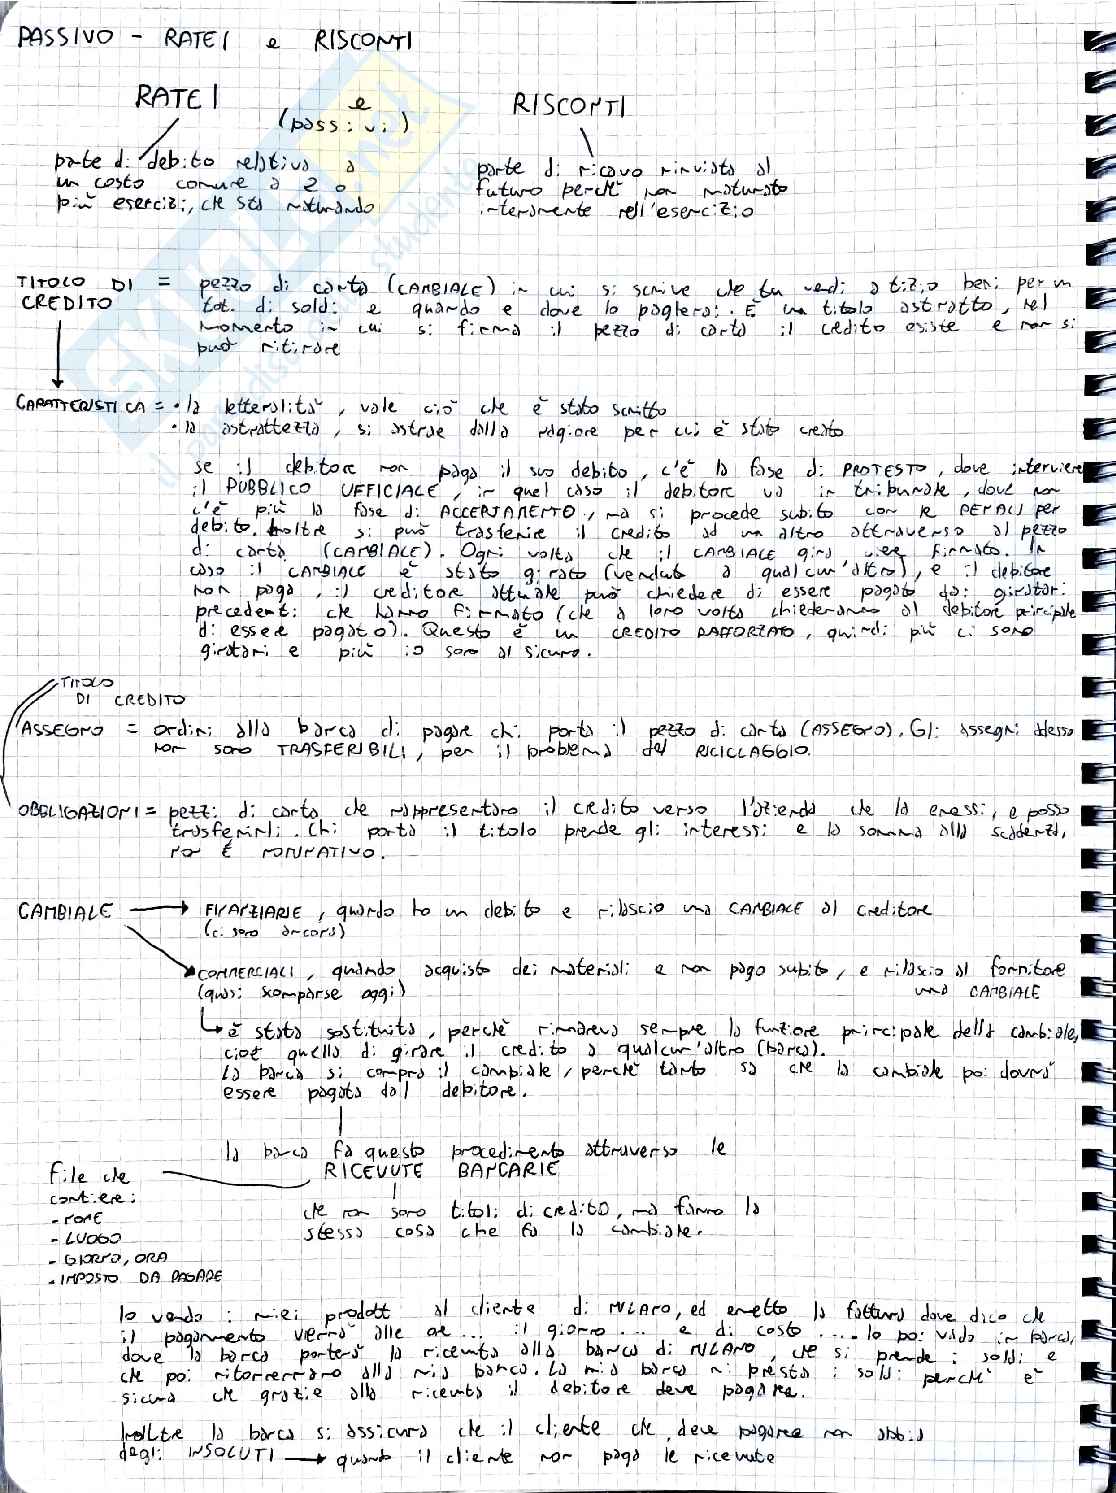 PASSIVO - RATEI e RISCONTI
RATEI e RISCONTI
(passivi)
parte di debito relativa a
un costo comune a 2 o
più esercizi, che sta maturando
parte di ricavo rinviata al
futuro perché non maturato
interamente nell'esercizio
TITOLO DI = pezzo di carta (CAMBIALE) in cui si scrive che tu vedi a tizio beni per un
CREDITO tot. di soldi e quando e dove lo pagherai. È un titolo astratto, nel
momento in cui si firma il pezzo di carta il credito esiste e non si
può ritirare
CARATTERISTICA = • la letteralità, vale ciò che è stato scritto
• la astrattezza, si astrae dalla ragione per cui è stato creato
se il debitore non paga il suo debito, c'è la fase di PROTESTO, dove interviene
il PUBBLICO UFFICIALE, in quel caso il debitore va in tribunale, dove non
c'è più la fase di ACCERTAMENTO, ma si procede subito con le PENALI per
debito. Inoltre si può trasferire il credito ad un altro attraverso al pezzo
di carta (CAMBIALE). Ogni volta che il CAMBIALE gira, viene firmato. In
caso il CAMBIALE è stato girato (venduto a qualcun'altro), e il debitore
non paga, il creditore attuale può chiedere di essere pagato dai giratari
precedenti che hanno firmato (che a loro volta chiederanno al debitore principale
di essere pagato). Questo è un CREDITO RAFFORZATO, quindi più ci sono
giratari e più io sono al sicuro.
TITOLO
DI CREDITO
ASSEGNO = ordini alla banca di pagare chi porta il pezzo di carta (ASSEGNO). Gli assegni adesso
non sono TRASFERIBILI, per il problema del RICICLAGGIO.
OBBLIGAZIONI = pezzi di carta che rappresentano il credito verso l'azienda che la emessi, e posso
trasferirli. Chi porta il titolo prende gli interessi e la somma alla scadenza,
non È NOMINATIVO.
CAMBIALE → FINANZIARIE, quando ho un debito e rilascio una CAMBIALE al creditore
(ci sono ancora)
COMMERCIALI, quando acquisto dei materiali e non pago subito, e rilascio al fornitore
(quasi scomparse oggi) una CAMBIALE
è stata sostituita, perchè rimaneva sempre la funzione principale della cambiale,
cioè quella di girare il credito a qualcun'altro (banca).
La banca si compra il cambiale, perchè tanto sa che la cambiale poi dovrà
essere pagata dal debitore.
la banca fa questo procedimento attraverso le
RICEVUTE BANCARIE
File che
contiene:
- NOME
- LUOGO
- GIORNO, ORA
- IMPOSTO DA PAGARE
che non sono titoli di credito, ma fanno la
stessa cosa che fa la cambiale.
Io vendo i miei prodotti al cliente di MILANO, ed emetto la fattura dove dico che
il pagamento verrà alle ore ... il giorno ... e di costo .... Io poi vado in banca,
dove la banca porterà la ricevuta alla banca di MILANO, che si prende i soldi e
che poi ritorneranno alla mia banca. La mia banca mi presta i soldi perchè è
sicura che grazie alla ricevuta il debitore deve pagare.
Inoltre la banca si assicura che il cliente che deve pagare non abbia
degli INSOLUTI → quando il cliente non paga le ricevute